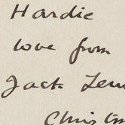 Hardie
love from
Jack
Christm